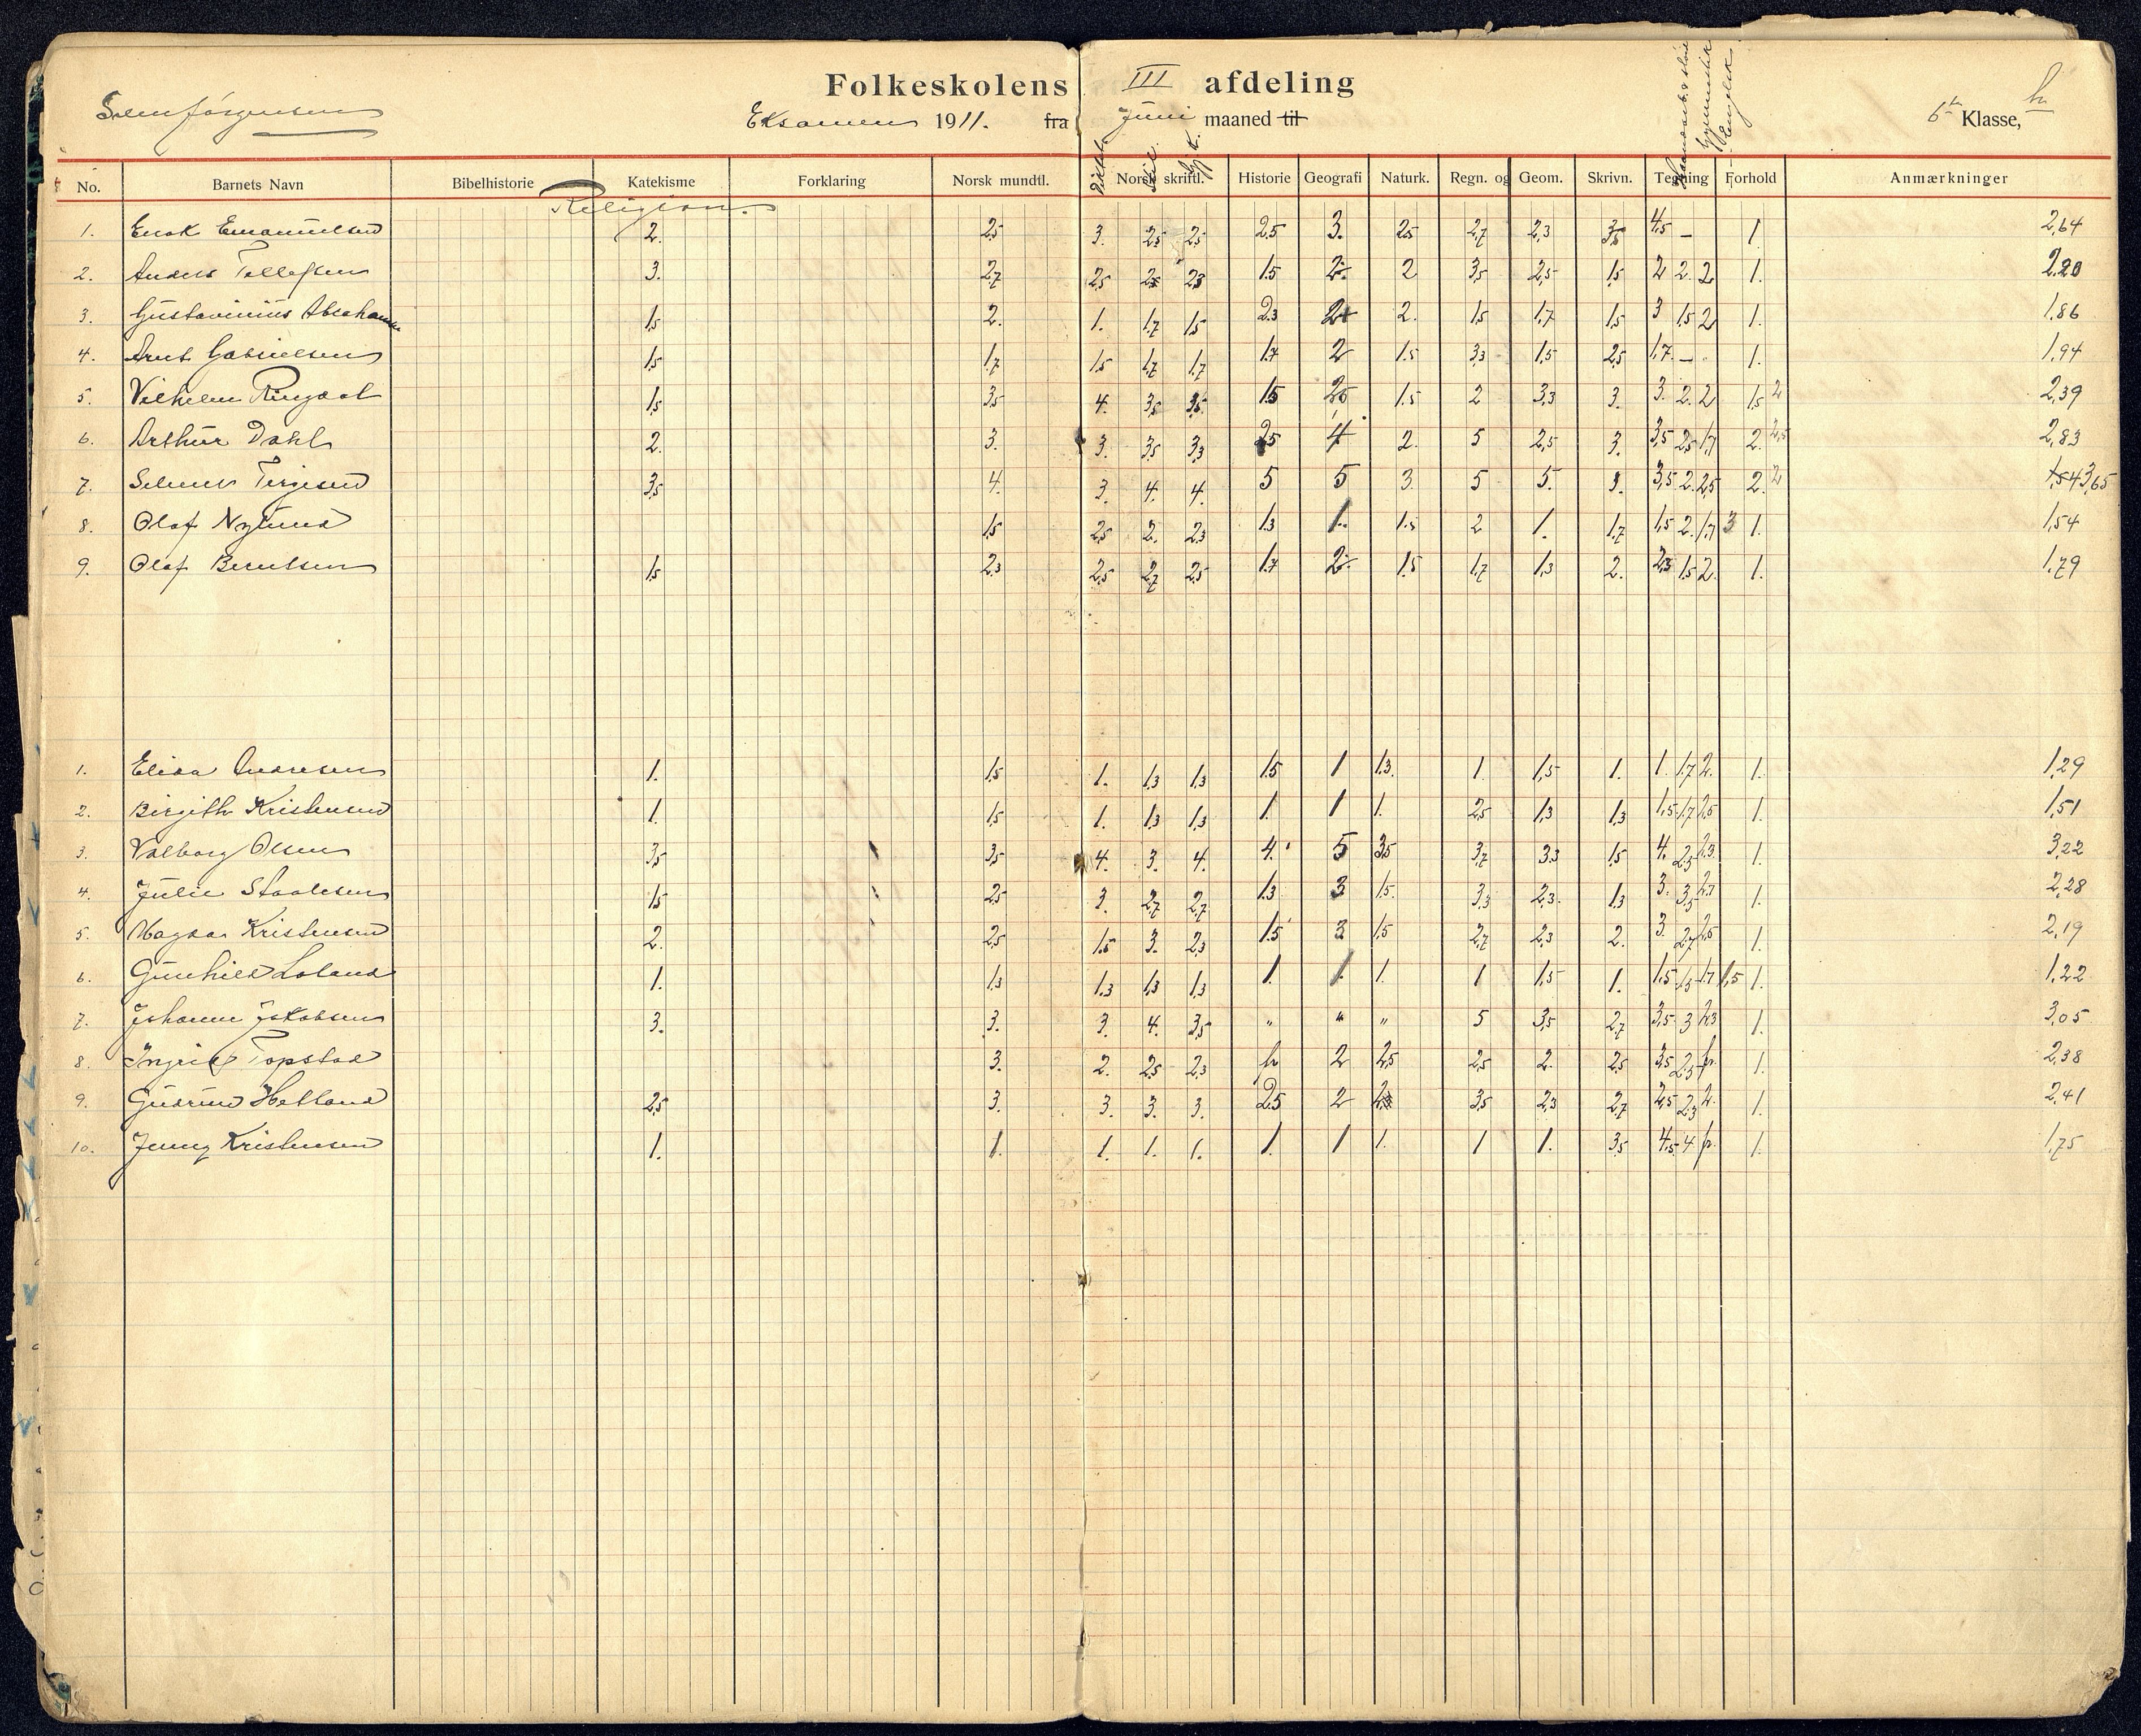 Folkeskolens III afdeling
Eksamen 1911. fra Juni maaned til
6te Klasse,
No. Barnets Navn Bibelhistorie Katekisme Forklaring Norsk mundtl. Norsk skriftl. Historie Geografi Naturk. Regn. og Geom. Skrivn. Tegning Forhold Anmærkninger
Diktat. Stil. Gymnastik Engelsk
Religion.
1. Enok Emanuelsen 2. 2,5 3. 2,5 2,5 2,5 3. 2,5 2,7 2,3 3,5 4,5 – 1 2,64
2. Anders Tellefsen 3. 2,7 2,5 2,5 2,3 1.5 2 2 3,5 2,5 1,5 2 2. 2 1. 2.20
3. Gustavinius Abraham 1,5 2. 1. 1,7 1,5 2.3 2 2. 1,5 1,7 1,5 3 1,5 2 1. 1,86
4. Arnt Gabrielsen 1,5 1,7 1,5 1,7 1,7 1.7 2 1.5 3,3 1,5 2,5 1,7. – 1. 1,94
5. Vilhelm Ringdal 1,5 3,5 4. 3,5 3,5 1.5 2,5 1.5 2 3,3 3. 3. 2. 2 1,5 2 2,39
6. Arthur Dahl 2. 3. 3. 3,5 3,3 2,5 4 2. 5 2,5 3. 3,5 2,5 1,7 2. 2,5 2,83
7. Selmer Terjesen 3,5 4. 3. 4. 4. 5 5 3. 5 5. 3. 3,5 2. 2,5 2. 2 1,54 3,65
8. Olaf Nylund 1,5 2,5 2. 2,3 1.3 1. 1.5 2 1. 1,7 1,5 2. 1,7 3 1. 1,54
9. Olaf Berntsen 1,5 2,3 2,5 2,7 2,5 1.7 2 1.5 1,7 1,3 2. 2,3 1,5 2. 1. 1,79
1. Elida Andresen 1. 1,5 1. 1,3 1,3 1.5 1 1.3. 1 1,5 1. 1. 1,7 2. 1. 1,29
2. Birgith Kristensen 1. 1,5 1. 1,3 1,3 1. 1 1. 2,5 1,3 1,3 1,5 1,7 2,5 1. 1,51
3. Valborg Olsen 3,5 3,5 4. 3. 4. 4. 5 3,5 3,7 3.3 1,5 4. 2,3 2,3 1. 3,22
4. Julie Staalesen 1,5 2,5 3. 2,7 2,7 1.3 3 1.5. 3,3 2,3. 1,3 3. 3,5 2,7 1. 2,28
5. Magda Kristensen 2. 2,5 1.5 3. 2,3 1.5 3 1,5 2,7 2,3 2. 3. 2,7 2,5 1. 2,19
6. Gunhild Loland 1. 1,3 1.3 1,3 1,3 1. 1. 1. 1 1,5 1. 1.5 1,5 1,7 1,5 1. 1,22
7. Johanne Jakobsen 3. 3. 3. 4. 3,5 " " " 5 3,5 2,7 3,5 3 2,3 1. 3,05
8. Ingrid Topstad 3. 2. 2,5 2,3 fr 2 2,5 2,5 2. 2,5 3,5 2,3 fr. 1. 2,38
9. Gudrun Hetland 2,5 3. 3. 3. 3. 2.5 2 3,5 2,3 2,7 2,5 2,3 2. 1. 2,41
10. Jenny Kristensen 1. 1. 1. 1. 1. 1. 1 1. 1 1. 3,5 4,5 4 fr. 1. 1,75